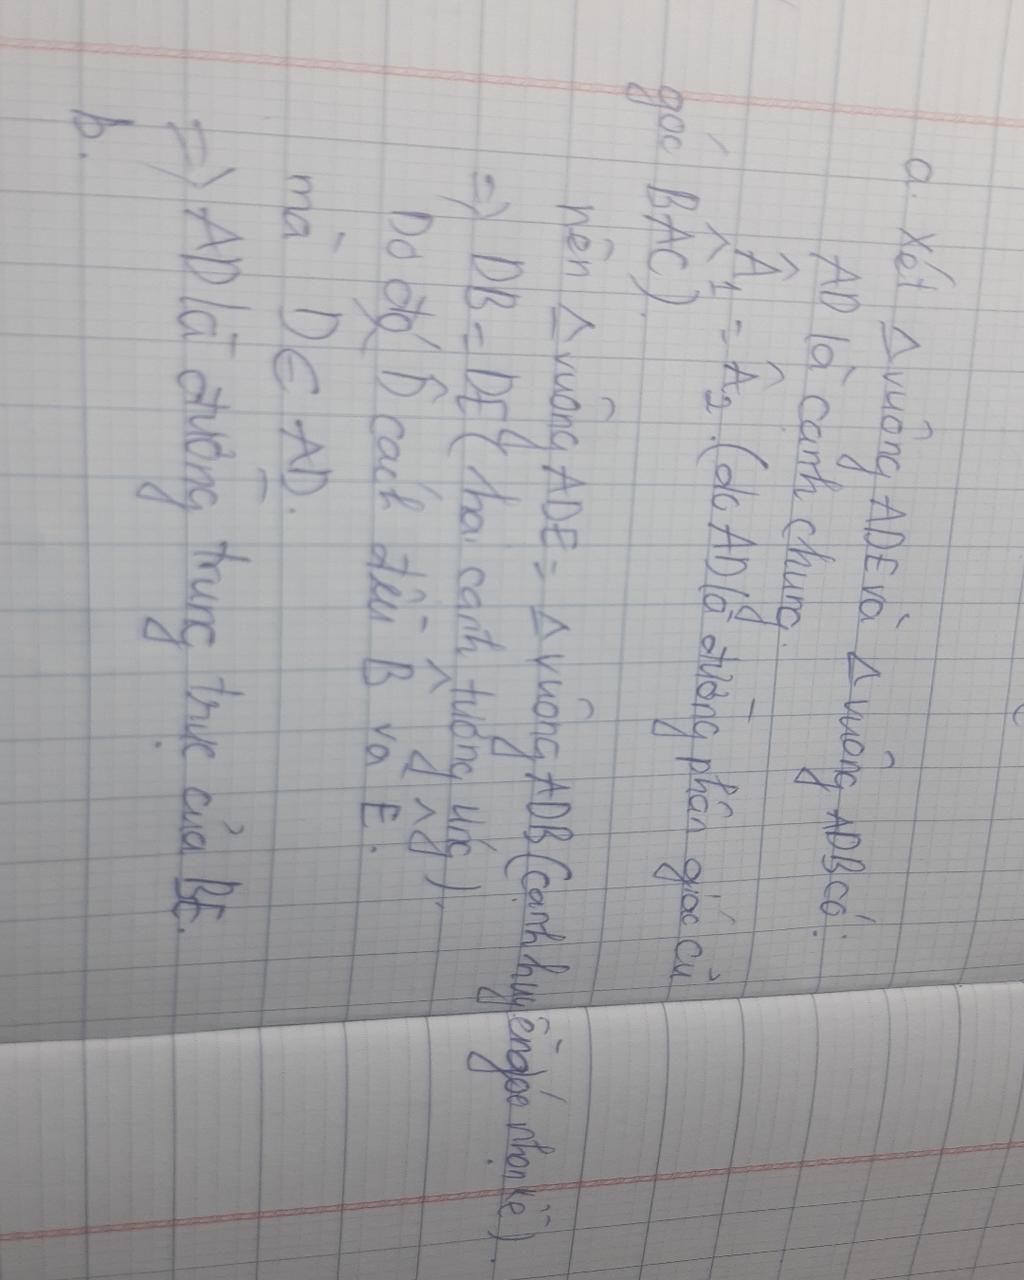 a. Xét Δ vuông ADE và Δ vuông ADB có:
AD là cạnh chung.
Â₁ = Â₂ (do AD là đường phân giác củ
góc B̂AC)
nên Δ vuông ADE = Δ vuông ADB (cạnh huyền góc nhọn kề).
=> DB = DE (hai cạnh tương ứng)
Do đó D cách đều B và E.
mà D ∈ AD.
=> AD là đường trung trực của BE.
b.